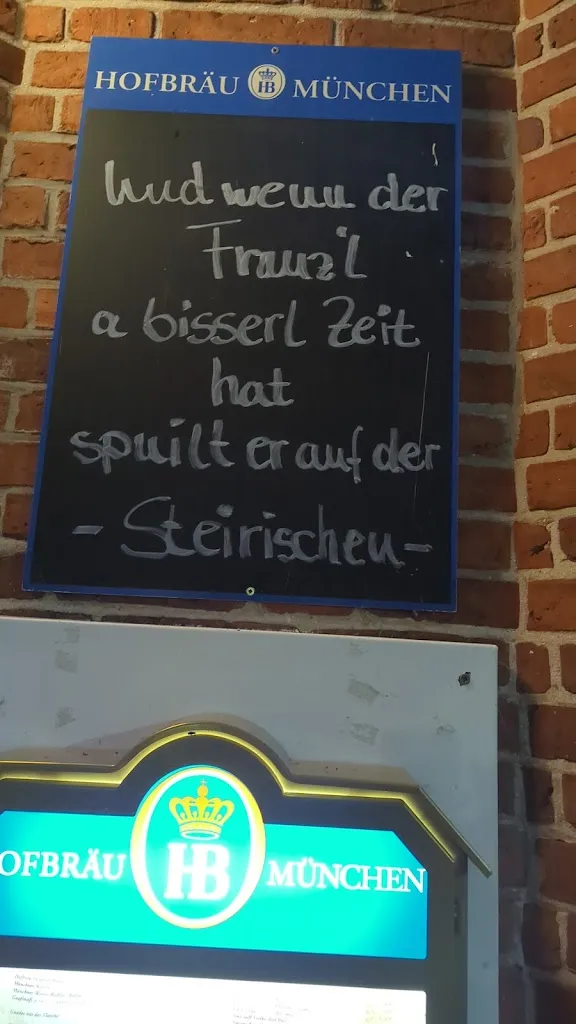 HOFBRÄU HB MÜNCHEN
Und wenn der
Franz'l
a bisserl Zeit
hat
spuilt er auf der
- Steirischen -
OFBRÄU HB MÜNCHEN